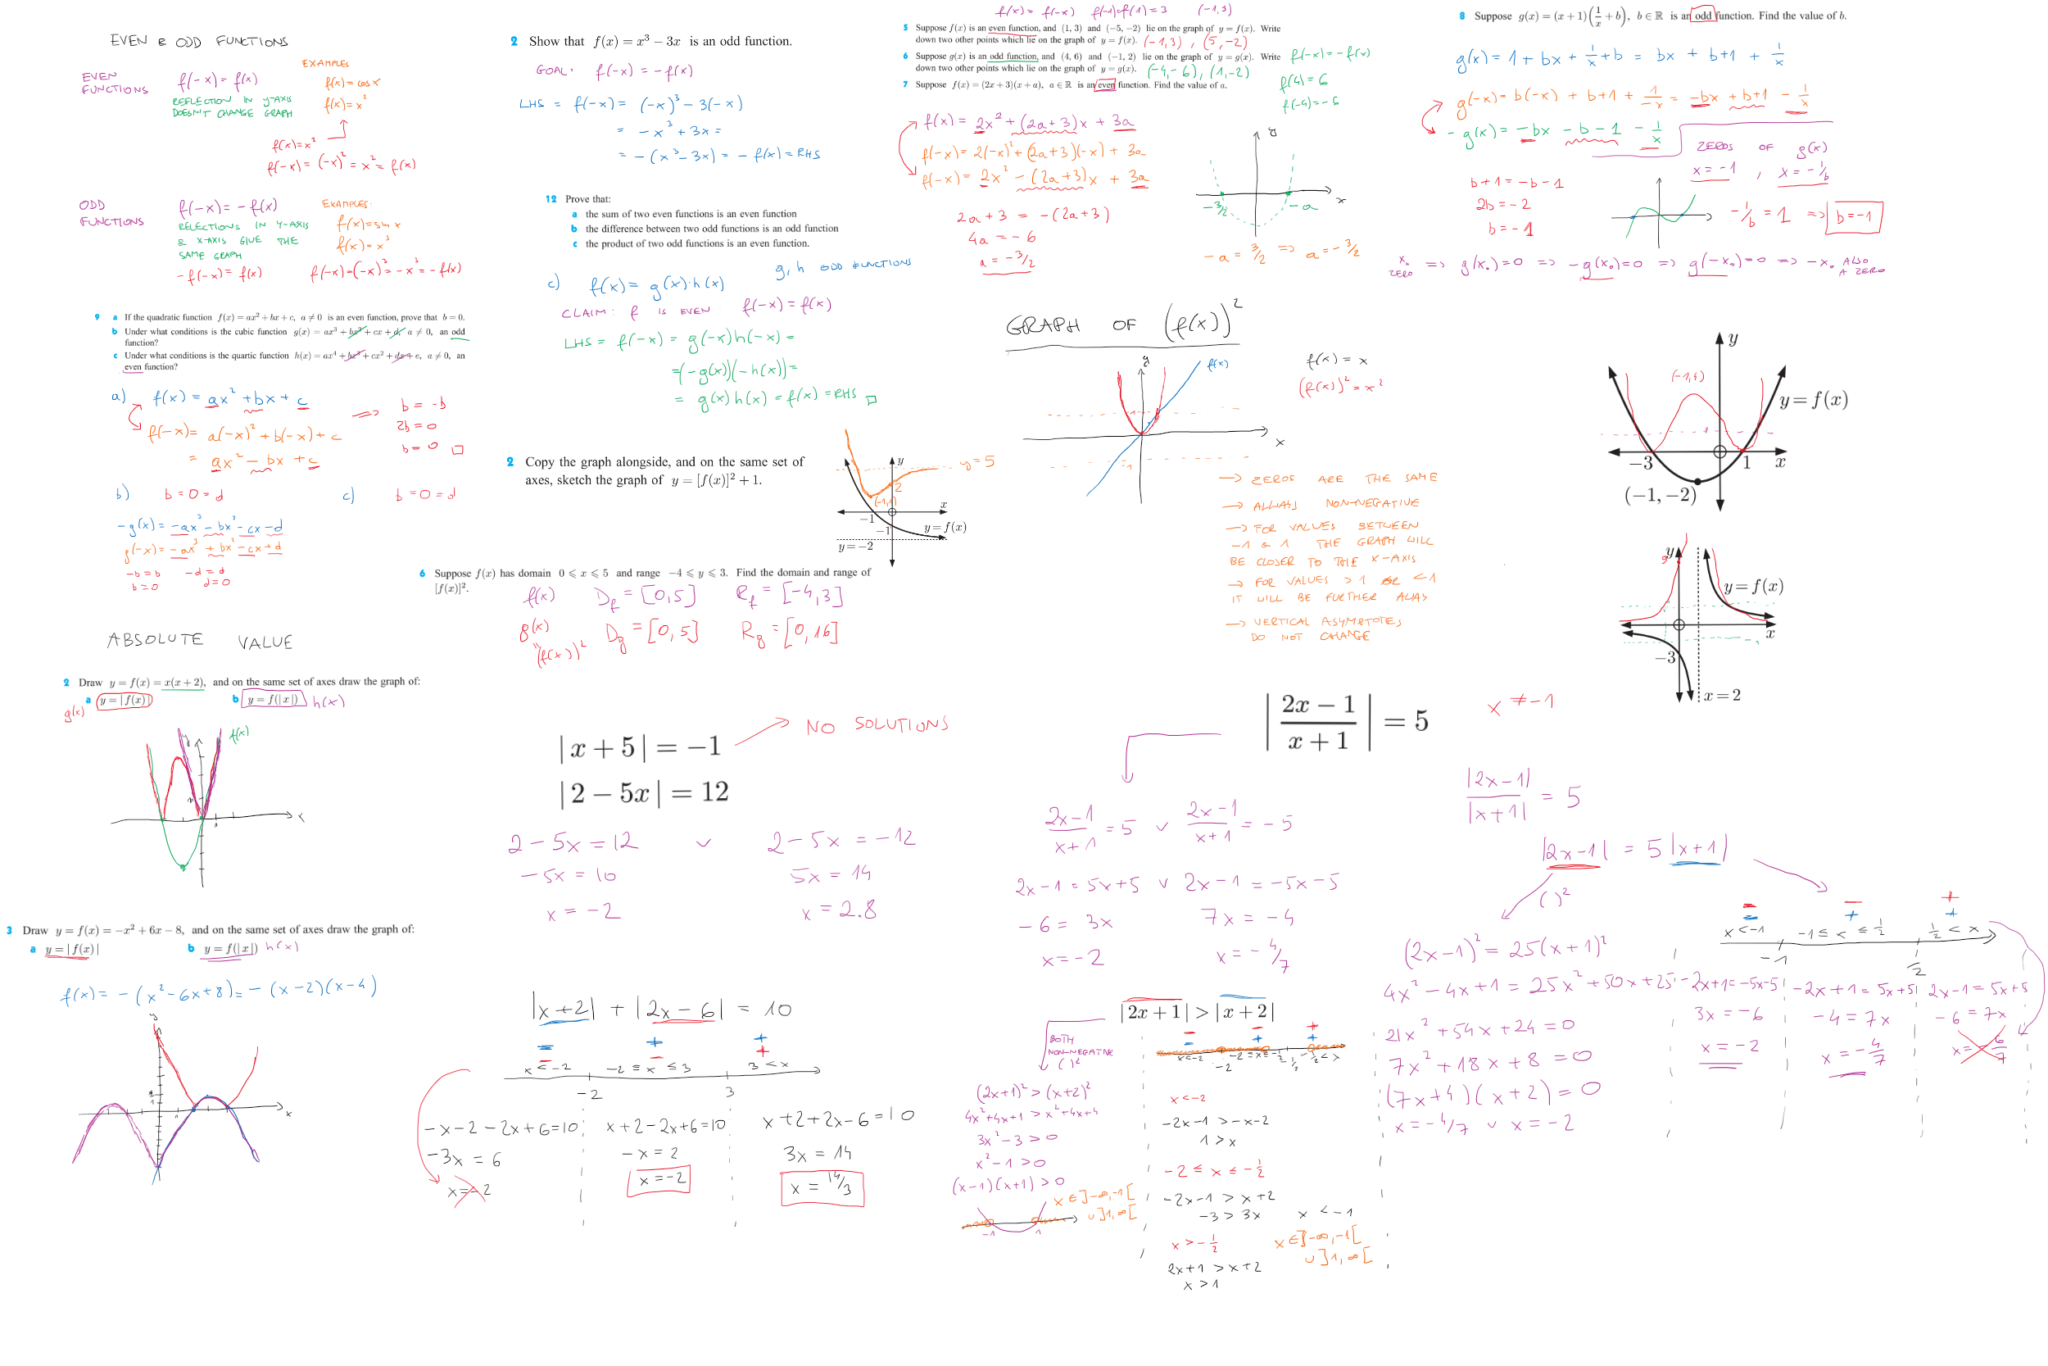 EVEN & ODD FUNCTIONS
EVEN FUNCTIONS
f(-x) = f(x)
REFLECTION IN y-AXIS
DOESN'T CHANGE GRAPH
EXAMPLES
f(x) = cos x
f(x) = x²
f(x) = x²
f(-x) = (-x)² = x² = f(x)
ODD FUNCTIONS
f(-x) = -f(x)
RELECTIONS IN Y-AXIS
& X-AXIS GIVE THE
SAME GRAPH
-f(-x) = f(x)
EXAMPLES:
f(x) = sin x
f(x) = x³
f(-x) = (-x)³ = -x³ = -f(x)
9 a If the quadratic function f(x) = ax² + bx + c, a ≠ 0 is an even function, prove that b = 0.
b Under what conditions is the cubic function g(x) = ax³ + bx² + cx + d, a ≠ 0, an odd
function?
c Under what conditions is the quartic function h(x) = ax⁴ + bx³ + cx² + dx + e, a ≠ 0, an
even function?
a) f(x) = ax² + bx + c
f(-x) = a(-x)² + b(-x) + c
= ax² - bx + c
⇒ b = -b
2b = 0
b = 0 □
b) b = 0 = d
c) b = 0 = d
-g(x) = -ax³ - bx² - cx - d
g(-x) = -ax³ + bx² - cx + d
-b = b -d = d
b = 0 d = 0
ABSOLUTE VALUE
2 Draw y = f(x) = x(x + 2), and on the same set of axes draw the graph of:
g(x) a y = |f(x)| b y = f(|x|) h(x)
f(x)
x
3 Draw y = f(x) = -x² + 6x - 8, and on the same set of axes draw the graph of:
a y = |f(x)| b y = f(|x|) h(x)
f(x) = -(x² - 6x + 8) = -(x-2)(x-4)
y
x
2 Show that f(x) = x³ - 3x is an odd function.
GOAL: f(-x) = -f(x)
LHS = f(-x) = (-x)³ - 3(-x)
= -x³ + 3x =
= -(x³ - 3x) = -f(x) = RHS
12 Prove that:
a the sum of two even functions is an even function
b the difference between two odd functions is an odd function
c the product of two odd functions is an even function.
c) f(x) = g(x)·h(x) g, h ODD FUNCTIONS
CLAIM: f IS EVEN f(-x) = f(x)
LHS = f(-x) = g(-x)h(-x) =
= (-g(x))(-h(x)) =
= g(x)h(x) = f(x) = RHS □
2 Copy the graph alongside, and on the same set of
axes, sketch the graph of y = [f(x)]² + 1.
y
y = 5
2
(-1,1)
x
-1
-1
y = f(x)
y = -2
6 Suppose f(x) has domain 0 ⩽ x ⩽ 5 and range -4 ⩽ y ⩽ 3. Find the domain and range of
[f(x)]².
f(x) D_f = [0,5] R_f = [-4,3]
g(x) D_g = [0,5] R_g = [0,16]
"(f(x))²
|x + 5| = -1 NO SOLUTIONS
|2 - 5x| = 12
2 - 5x = 12 ∨ 2 - 5x = -12
-5x = 10 5x = 14
x = -2 x = 2.8
|x+2| + |2x-6| = 10
- + +
- - +
x < -2 -2 ≤ x ≤ 3 3 < x
-2 3
-x-2-2x+6=10 x+2-2x+6=10 x+2+2x-6=10
-3x = 6 -x = 2 3x = 14
x = -2 x = -2 x = 14/3
f(x) = f(-x) f(-1) = f(1) = 3 (-1,3)
5 Suppose f(x) is an even function, and (1, 3) and (-5, -2) lie on the graph of y = f(x). Write
down two other points which lie on the graph of y = f(x). (-1,3), (5,-2)
6 Suppose g(x) is an odd function, and (4, 6) and (-1, 2) lie on the graph of y = g(x). Write
down two other points which lie on the graph of y = g(x). (-4,-6), (1,-2)
7 Suppose f(x) = (2x + 3)(x + a), a ∈ ℝ is an even function. Find the value of a.
f(-x) = -f(x)
f(4) = 6
f(-4) = -6
f(x) = 2x² + (2a+3)x + 3a
f(-x) = 2(-x)² + (2a+3)(-x) + 3a
f(-x) = 2x² - (2a+3)x + 3a
2a+3 = -(2a+3)
4a = -6
a = -3/2
y
x
-3/2 -a
-a = 3/2 ⇒ a = -3/2
GRAPH OF (f(x))²
y
f(x)
x
1
-1
f(x) = x
(f(x))² = x²
→ ZEROS ARE THE SAME
→ ALWAYS NON-NEGATIVE
→ FOR VALUES BETWEEN
-1 & 1 THE GRAPH WILL
BE CLOSER TO THE X-AXIS
→ FOR VALUES >1 OR <1
IT WILL BE FURTHER AWAS
→ VERTICAL ASYMPTOTES
DO NOT CHANGE
8 Suppose g(x) = (x + 1)(1/x + b), b ∈ ℝ is an odd function. Find the value of b.
g(x) = 1 + bx + 1/x + b = bx + b+1 + 1/x
g(-x) = b(-x) + b+1 + 1/-x = -bx + b+1 - 1/x
-g(x) = -bx - b - 1 - 1/x
b+1 = -b-1
2b = -2
b = -1
ZEROS OF g(x)
x = -1, x = -1/b
-1/b = 1 ⇒ b = -1
x₀ ZERO ⇒ g(x₀)=0 ⇒ -g(x₀)=0 ⇒ g(-x₀)=0 ⇒ -x₀ ALSO A ZERO
y
(-1,4)
y = f(x)
1
-3 1 x
(-1, -2)
y
y = f(x)
x
-3
x = 2
|(2x - 1)/(x + 1)| = 5 x ≠ -1
(2x-1)/(x+1) = 5 ∨ (2x-1)/(x+1) = -5
2x-1 = 5x+5 ∨ 2x-1 = -5x-5
-6 = 3x 7x = -4
x = -2 x = -4/7
|2x-1|/|x+1| = 5
|2x-1| = 5|x+1|
( )²
(2x-1)² = 25(x+1)²
4x² - 4x + 1 = 25x² + 50x + 25
21x² + 54x + 24 = 0
7x² + 18x + 8 = 0
(7x+4)(x+2) = 0
x = -4/7 ∨ x = -2
- - +
- + +
x < -1 -1 ≤ x ≤ 1/2 1/2 < x
-1 1/2
-2x+1=-5x-5 -2x+1=5x+5 2x-1=5x+5
3x = -6 -4 = 7x -6 = 7x
x = -2 x = -4/7 x = -6/7
|2x + 1| > |x + 2|
BOTH
NON-NEGATIVE
( )²
(2x+1)² > (x+2)²
4x²+4x+1 > x²+4x+4
3x² - 3 > 0
x² - 1 > 0
(x-1)(x+1) > 0
x ∈ ]-∞,-1[
∪ ]1,∞[
-1 1
- - +
- + +
x < -2 -2 ≤ x ≤ -1/2 -1/2 < x
-2
x < -2
-2x-1 > -x-2
1 > x
-2 ≤ x ≤ -1/2
-2x-1 > x+2
-3 > 3x x < -1
x > -1/2
2x+1 > x+2
x > 1
x ∈ ]-∞,-1[
∪ ]1,∞[